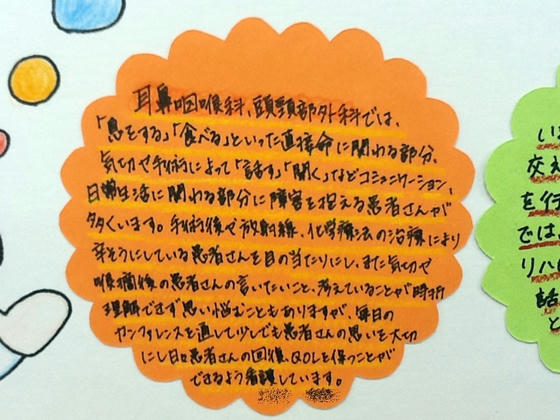 耳鼻咽喉科、頭頸部外科では、
「息をする」「食べる」といった直接命に関わる部分、
気切や手術によって「話す」「聞く」などコミュニケーション、
日常生活に関わる部分に障害を控える患者さんが
多くいます。手術後や放射線、化学療法の治療により
辛そうにしている患者さんを目の当たりにし、また気切や
喉摘後の患者さんの言いたいこと、考えていることが時折
理解できず思い悩むこともありますが、毎日の
カンファレンスを通して少しでも患者さんの思いを大切
にし日々患者さんの回復、QOLを保つことが
できるよう看護しています。
い
交
を行
では
リハ
話
と